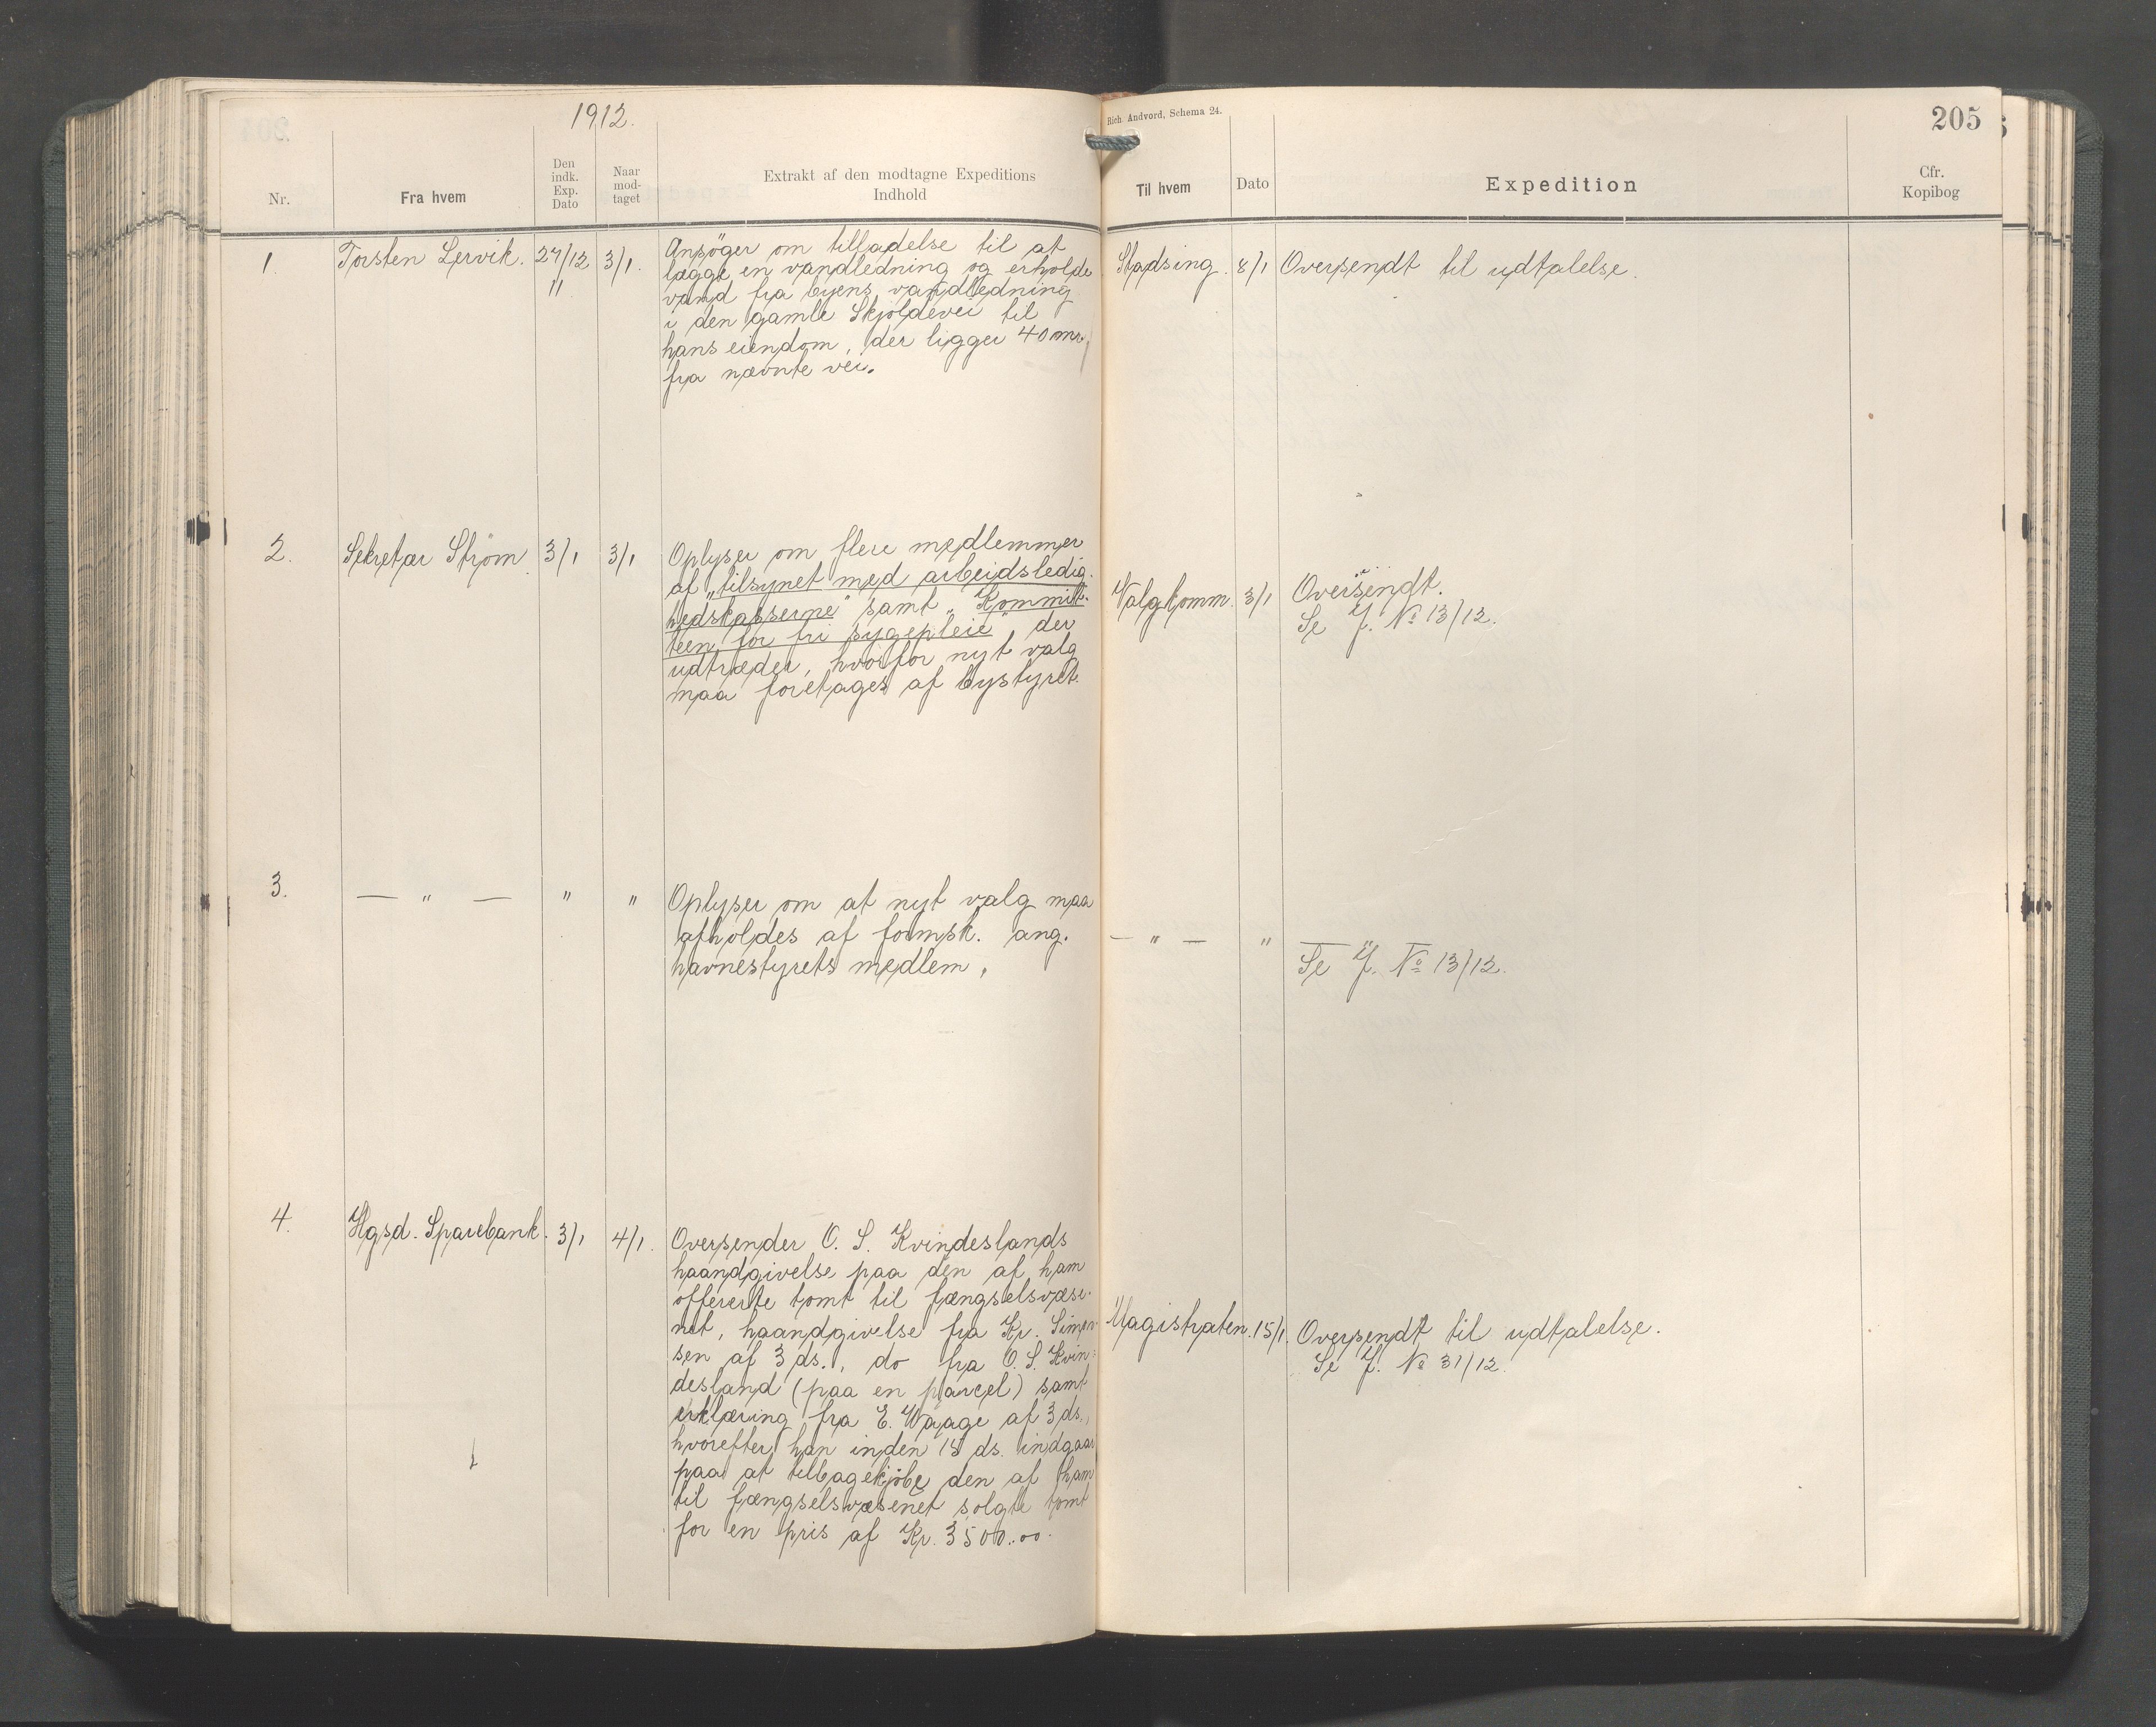 1912.
Rich. Andvord, Schema 24.
205
Nr.
Fra hvem
Den
indk.
Exp.
Dato
Naar
mod-
taget
Extrakt af den modtagne Expeditions
Indhold
Til hvem
Dato
Expedition
Cfr.
Kopibog
1. Torsten Lervik. 27/12 11 3/1.
Ansöger om tilladelse til at
lægge en vandledning og erholde
vand fra byens vandledning
i den gamle Skjoldevei til
hans eiendom, der ligger 40 mr.
fra nævnte vei.
Stadsing. 8/1 Oversendt til udtalelse.
2. Sekretær Strøm 3/1 3/1
Oplyser om flere medlemmer
af „tilsynet med arbeidsledig-
hedskasserne" samt „Kommit-
teen for fri sygepleie" der
udtræder, hvorfor nyt valg
maa foretages af bystyret.
Valgkomm. 3/1 Oversendt.
Se J. No 13/12.
3. — " — " "
Oplyser om at nyt valg maa
afholdes af formsk. ang.
havnestyrets medlem.
— " — " — " —
Se J. No 13/12.
4. Hgsd. Sparebank. 3/1 4/1.
Oversender O. S. Kvindeslands
haandgivelse paa den af ham
offererte tomt til fængselsvæse-
net, haandgivelse fra Kr. Simon-
sen af 3 ds., do fra O. S. Kvin-
desland (paa en parcel) samt
erklæring fra E. Waage af 3 ds.,
hvorefter han inden 15 ds. indgaar
paa at tilbagekjöbe den af ham
til fængselsvæsenet solgte tomt
for en pris af Kr. 3500.00.
Magistraten. 15/1. Oversendt til udtalelse.
Se J. No 31/12.